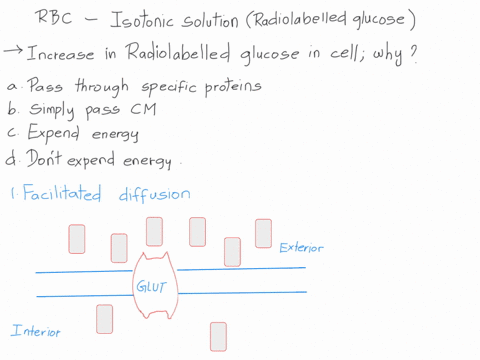 RBC - Isotonic solution (Radiolabelled glucose)
→ Increase in Radiolabelled glucose in cell; why?
a. Pass through specific proteins
b. Simply pass CM
c. Expend energy
d. Don't expend energy.
1. Facilitated diffusion
Exterior
GLUT
Interior